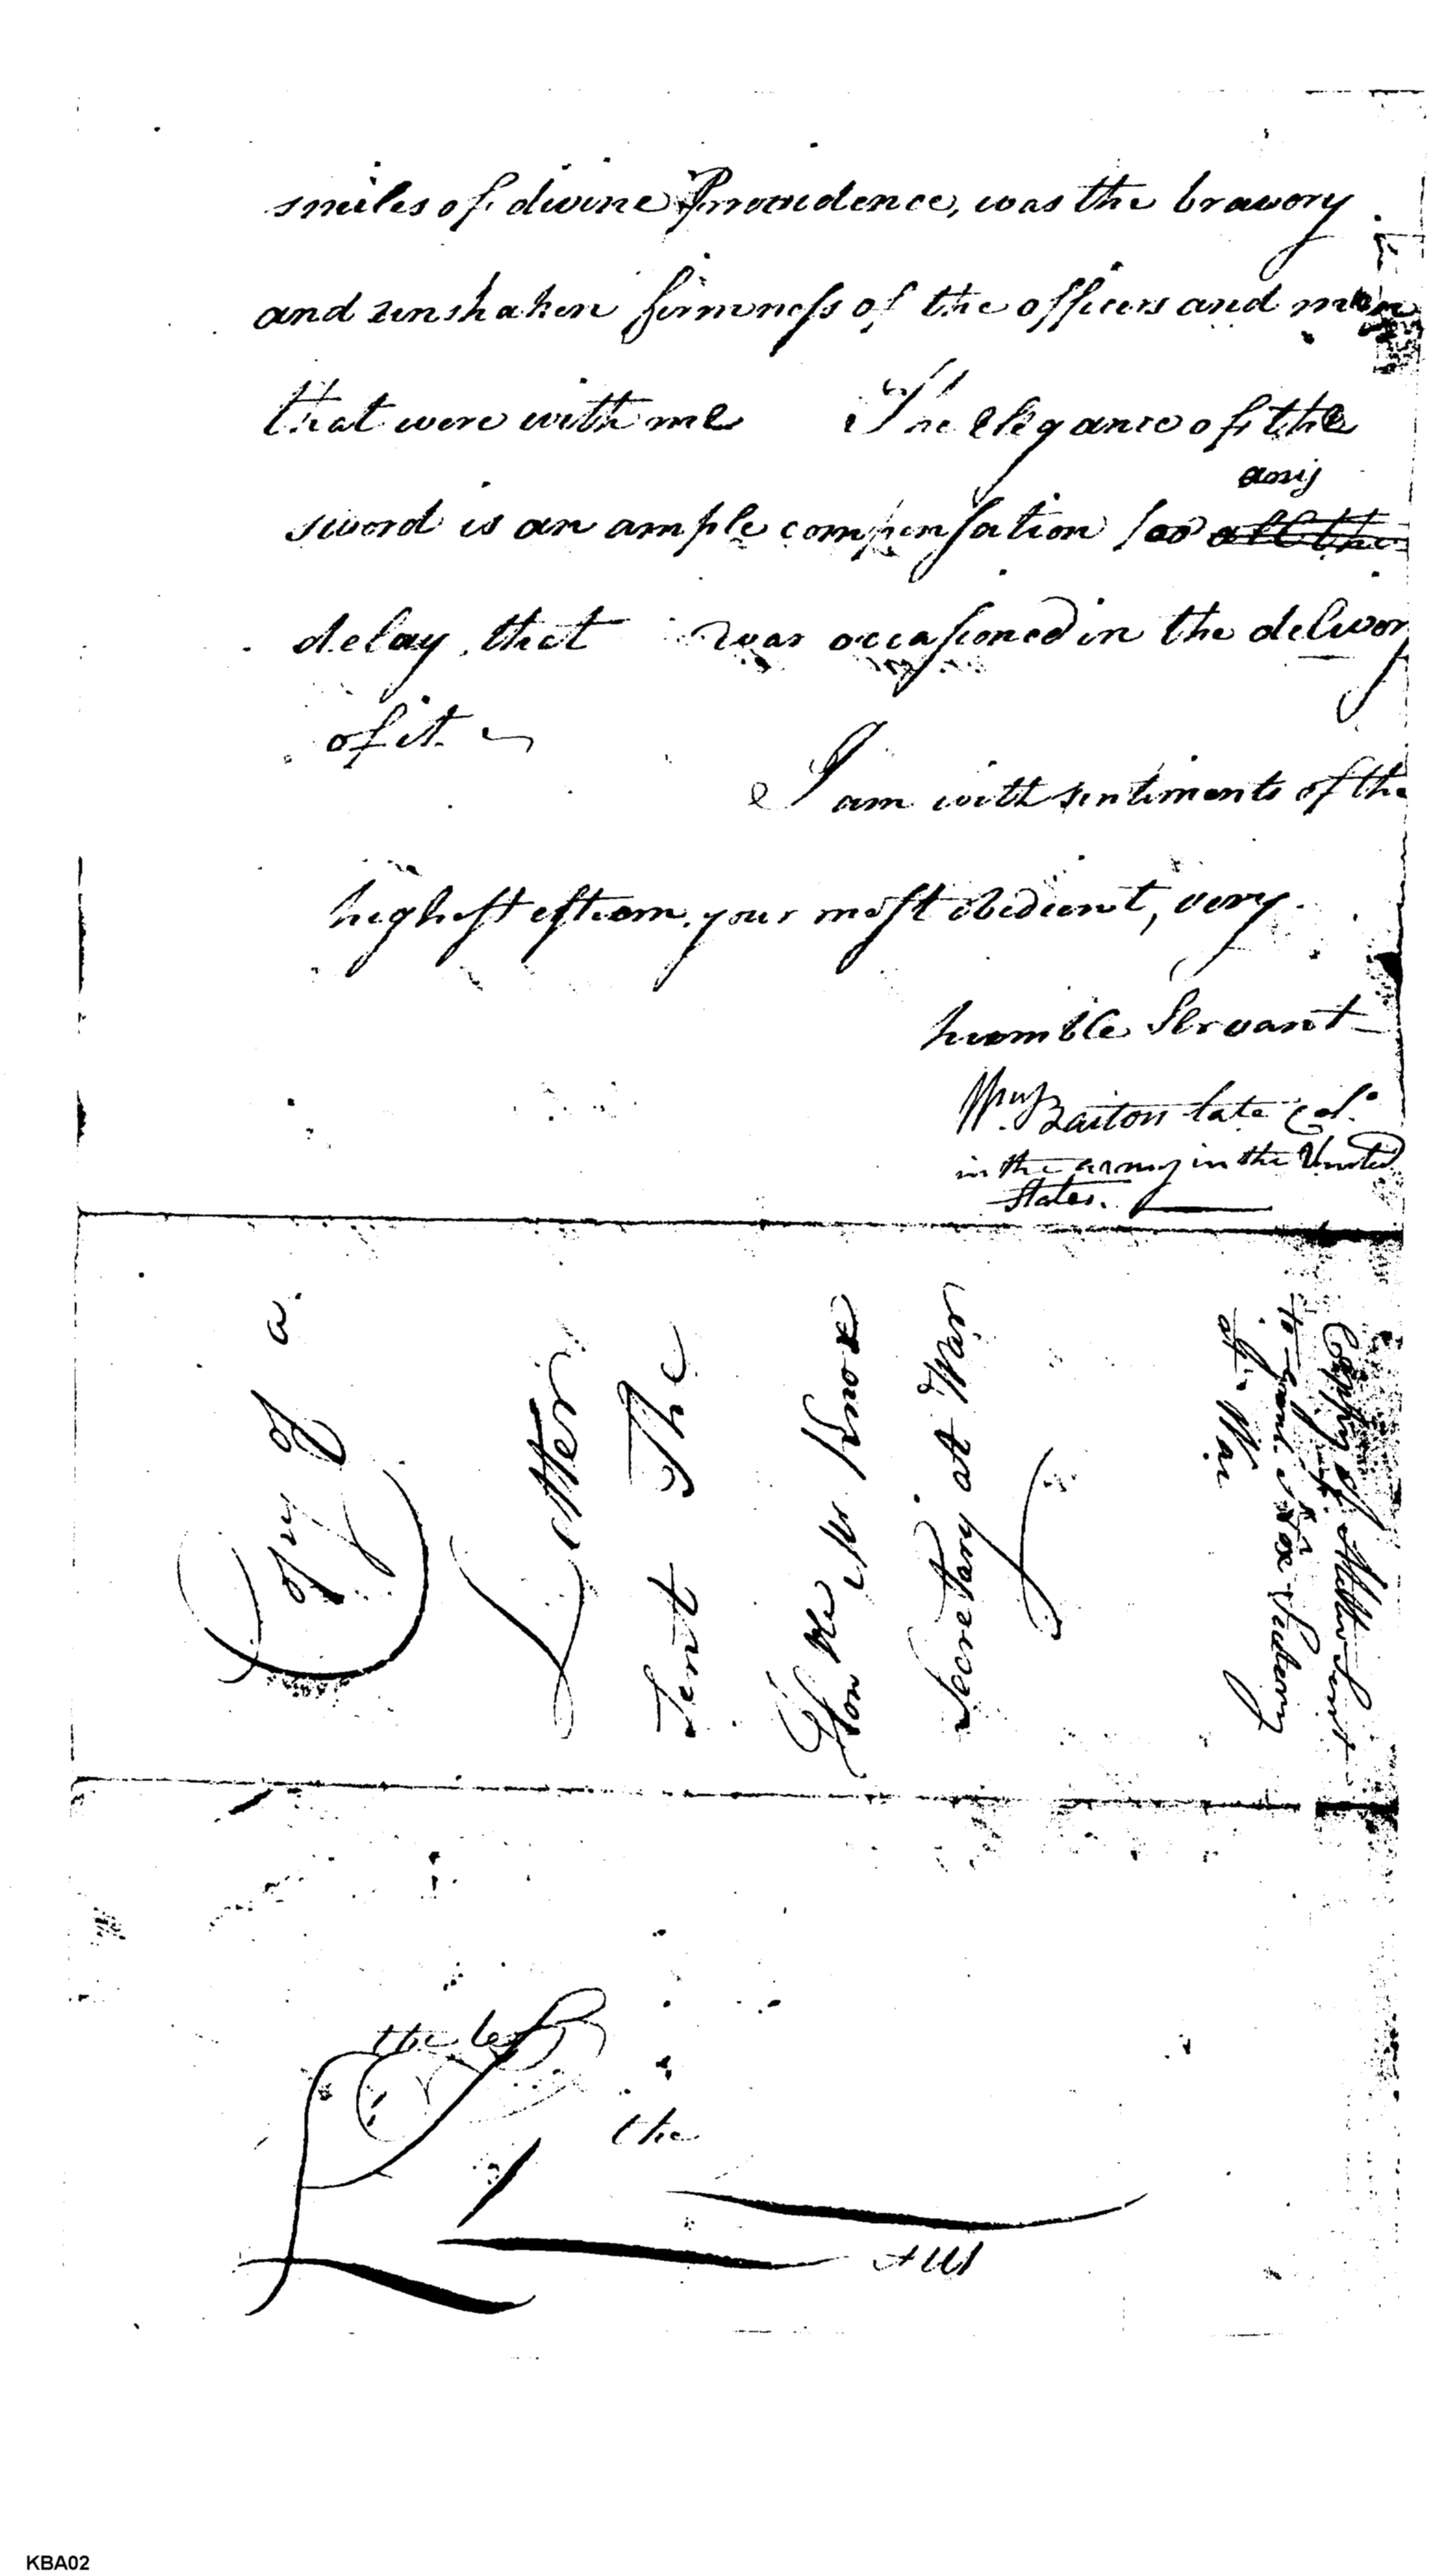 smiles of divine Providence, was the bravery
and unshaken firmness of the officers and men
that were with me The elegance of the
any
sword is an ample compensation for all the
delay that was occasioned in the delivery
of it.
I am with sentiments of the
highest esteem, your most obedient, very
humble Servant
Wm Barton late Col.
in the army in the United
States.
Copy of a
Letter
Sent The
Honble Mr Knox
Secretary at War
Coppy of Letter Sent
to Genl Nox Secterry
at War
the
the
KBA02